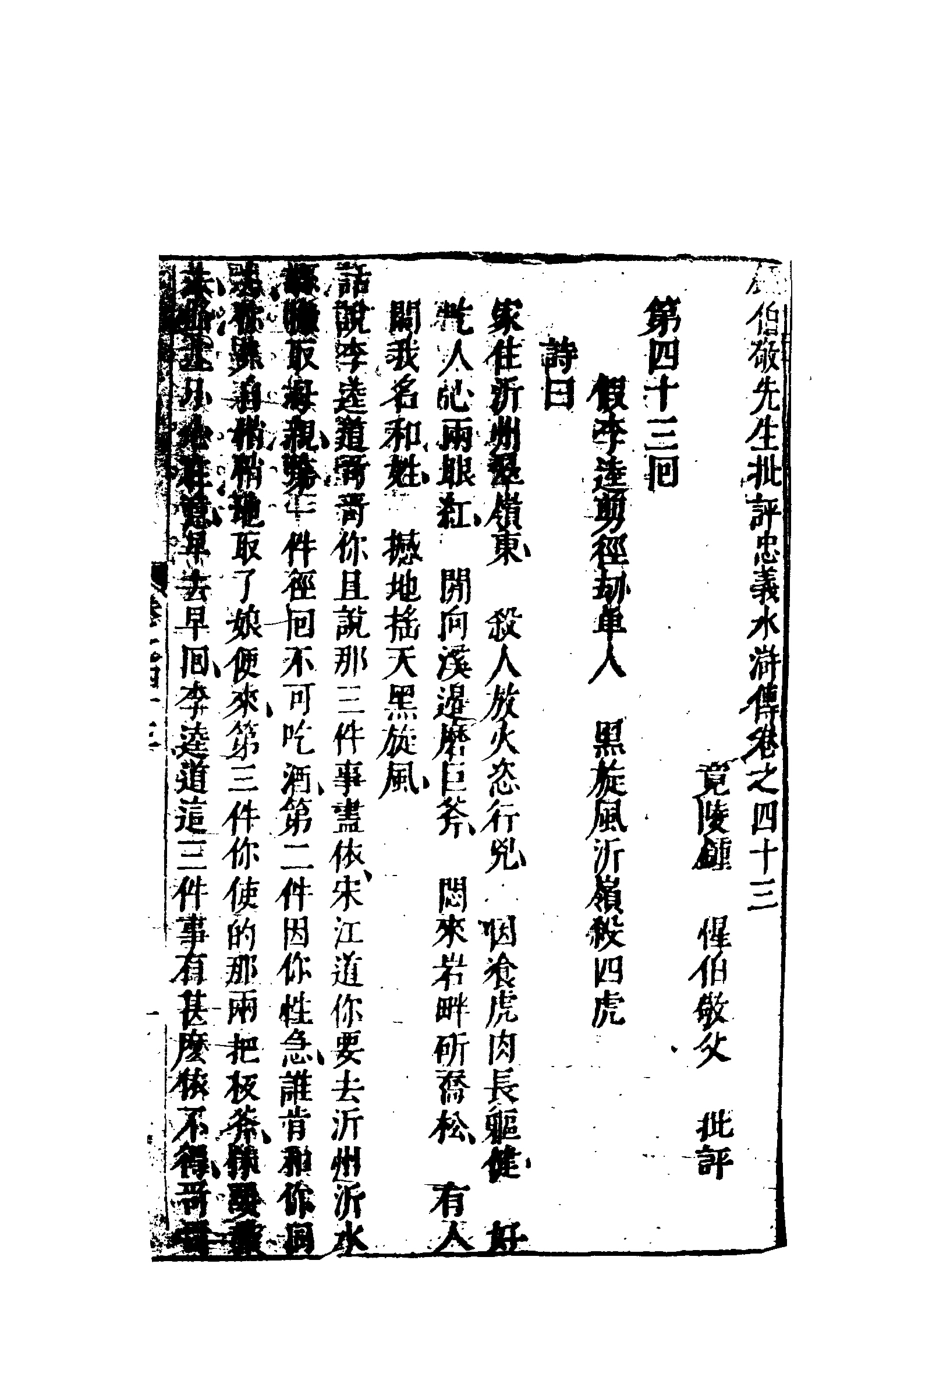 伯敬先生批評忠義水滸傳卷之四十三
竟陵鍾　惺伯敬父　批評
第四十三回
假李逵剪徑刼单人　黑旋風沂嶺殺四虎
詩曰
家住沂州翠嶺東、殺人放火恣行兇、因飡虎肉長軀健、好
吃人心兩眼紅、閒向溪邊磨巨斧、悶來岩畔斫喬松、有人
問我名和姓、撼地搖天黑旋風、
話說李逵道哥哥你且說那三件事盡依、宋江道你要去沂州沂水
縣取母親、第一件徑回不可吃酒、第二件因你性急、誰肯和你同
去你自悄悄地取了娘便來、第三件你使的那兩把板斧、休要
去、路上小心在意、早去早回、李逵道這三件事有甚麽依不得、哥